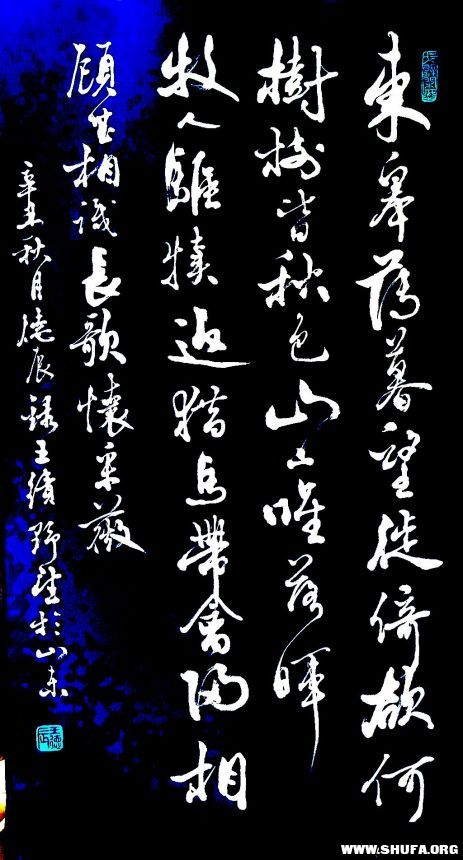 東皋薄暮望徙倚欲何
樹樹皆秋色山山唯落暉
牧人驅犢返猎馬帶禽歸相
顧無相識長歌懷采薇
辛丑秋月德辰録王績野望於山東
WWW.SHUFA.ORG